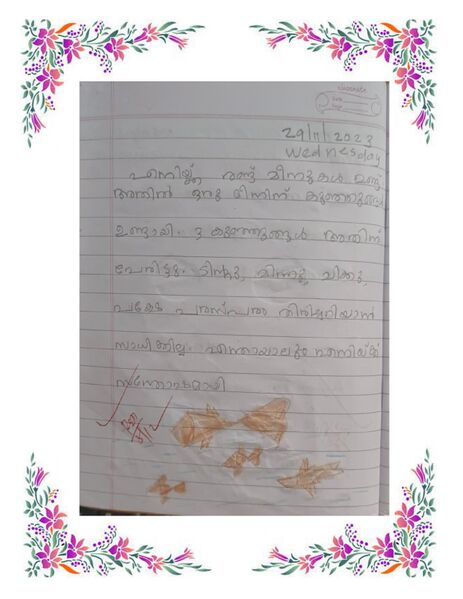 classmate
Date
Page
29/11/2023
Wednesday
എനിയ്ക്ക് രണ്ട് മീനുകൾ ഉണ്ട്
അതിൽ ഒരു മീനിന് കുഞ്ഞുങ്ങൾ
ഉണ്ടായി. 3 കുഞ്ഞുങ്ങൾ അതിന്
പേരിട്ടു. ടിന്റു, മിന്നു, ചിക്കു,
പക്ഷേ പരസ്പരം തിരിച്ചറിയാൻ
സാധിക്കില്ല. എന്തായാലും എനിയ്ക്ക്
സന്തോഷമായി